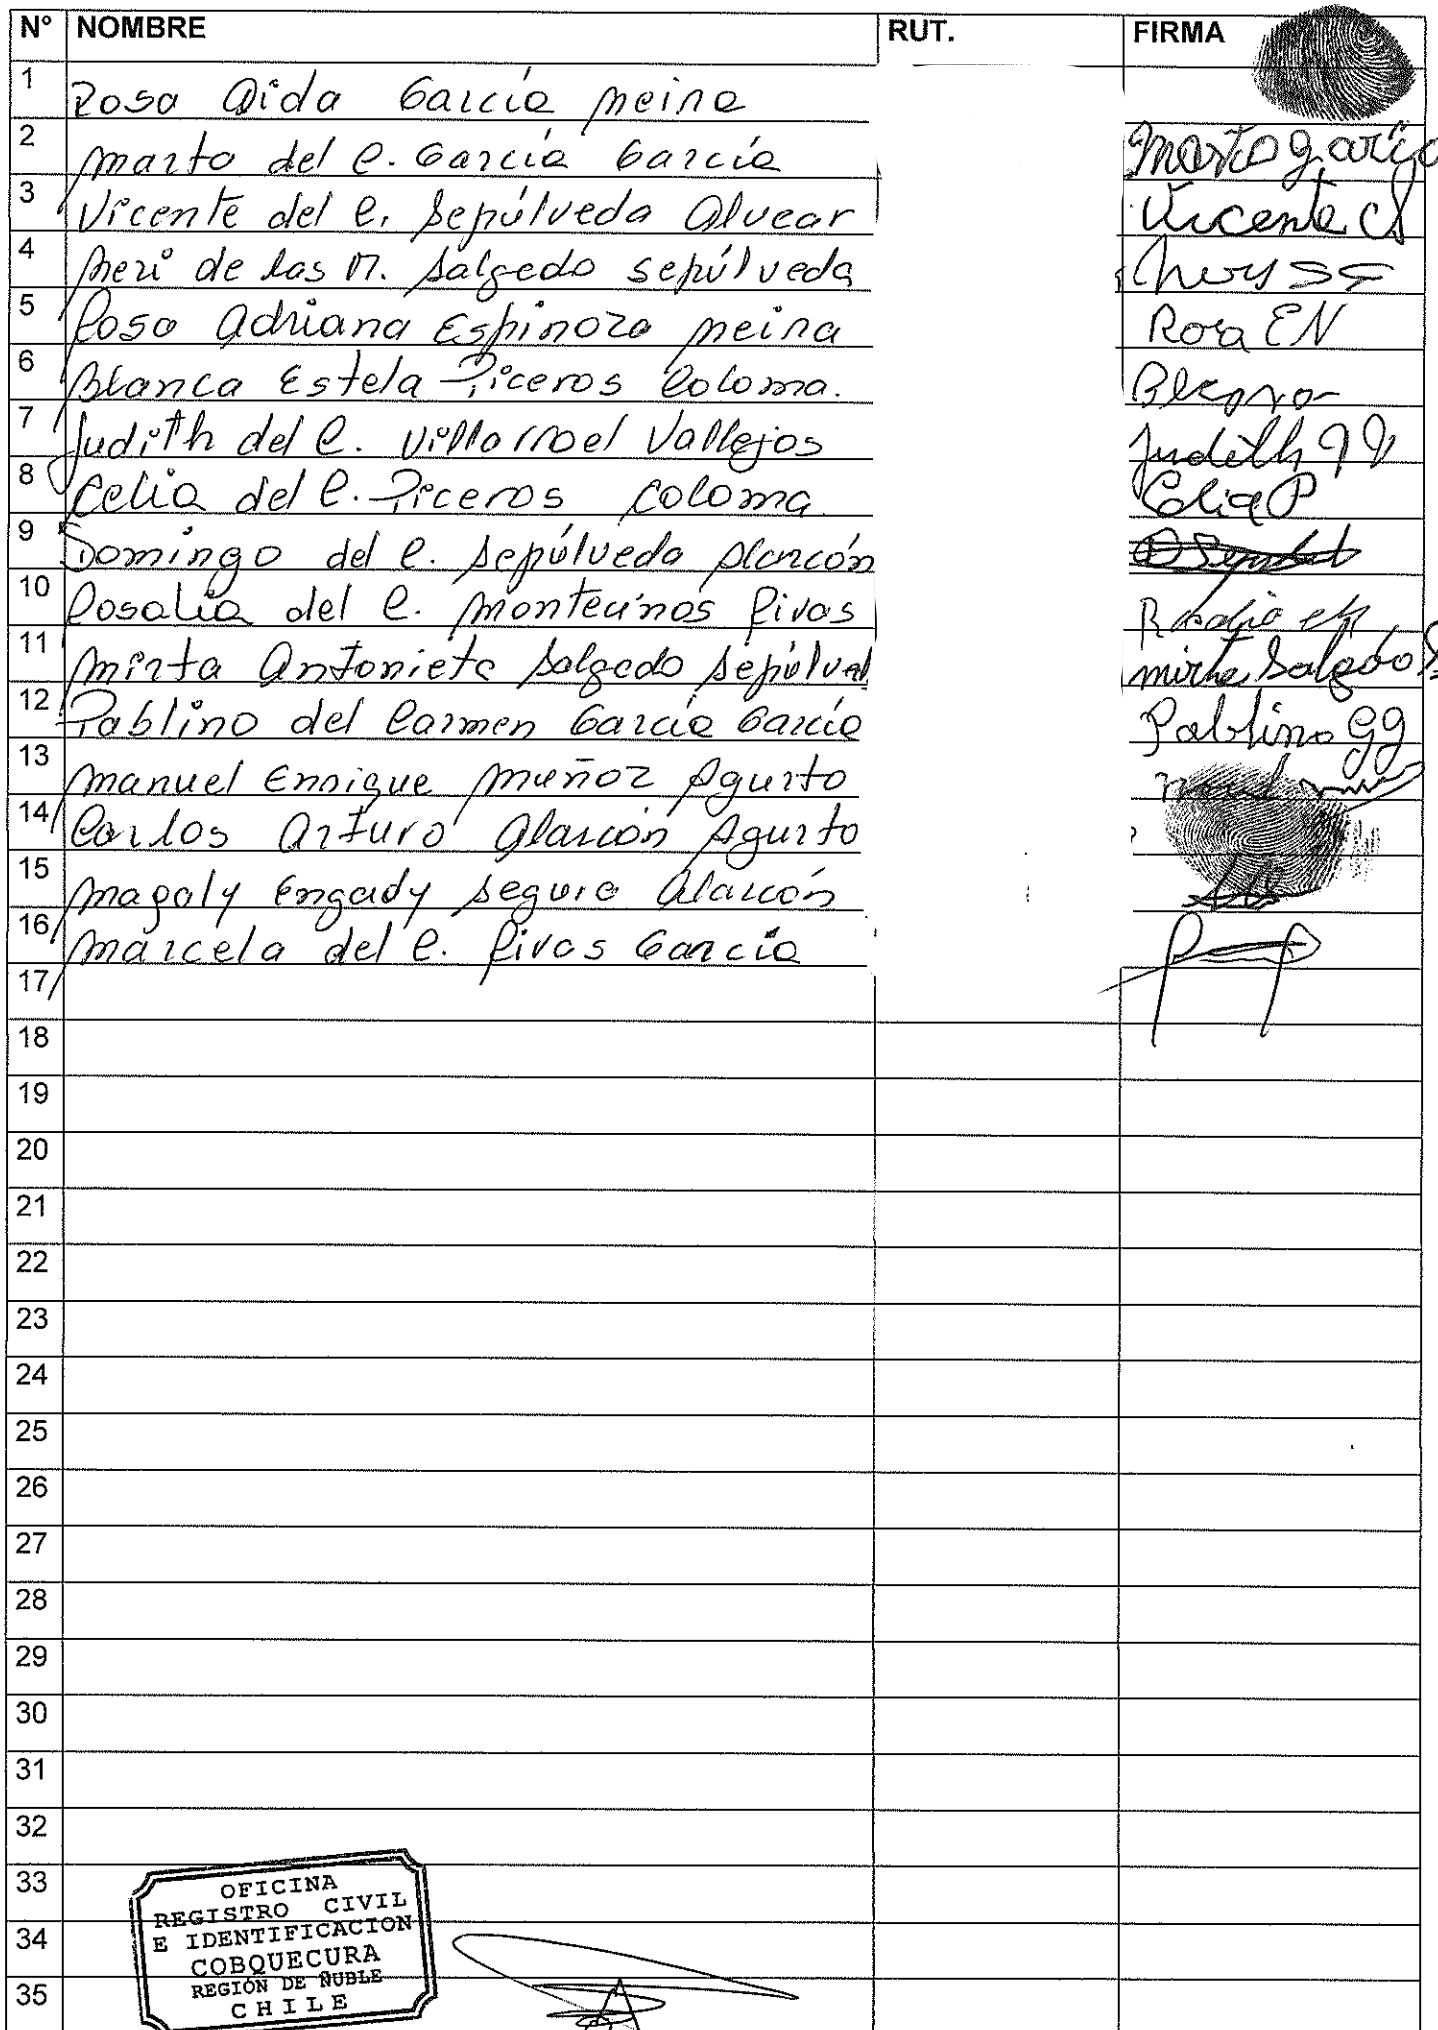 N° NOMBRE RUT. FIRMA
1 Rosa Aida García Neira
2 Marta del C. García García Marta garcia
3 Vicente del C. Sepúlveda Alvear Vicente CS
4 Meri de las M. Salgado Sepúlveda
5 Rosa Adriana Espinoza Neira Rosa EN
6 Blanca Estela Piceros Coloma.
7 Judith del C. Villarroel Vallejos Judith
8 Celia del C. Piceros Coloma Celia P
9 Domingo del C. Sepúlveda Alarcón
10 Rosalía del C. Montecinos Rivas
11 Mirta Antonieta Salgado Sepúlved mirta Salgado S
12 Pablino del Carmen García García Pablino gg
13 Manuel Enrique Muñoz Agurto
14 Carlos Arturo Alarcón Agurto
15 Magaly Engady Segura Alarcón
16 Marcela del C. Rivas García
17
18
19
20
21
22
23
24
25
26
27
28
29
30
31
32
33
34
35
OFICINA
REGISTRO CIVIL
E IDENTIFICACION
COBQUECURA
REGIÓN DE ÑUBLE
CHILE